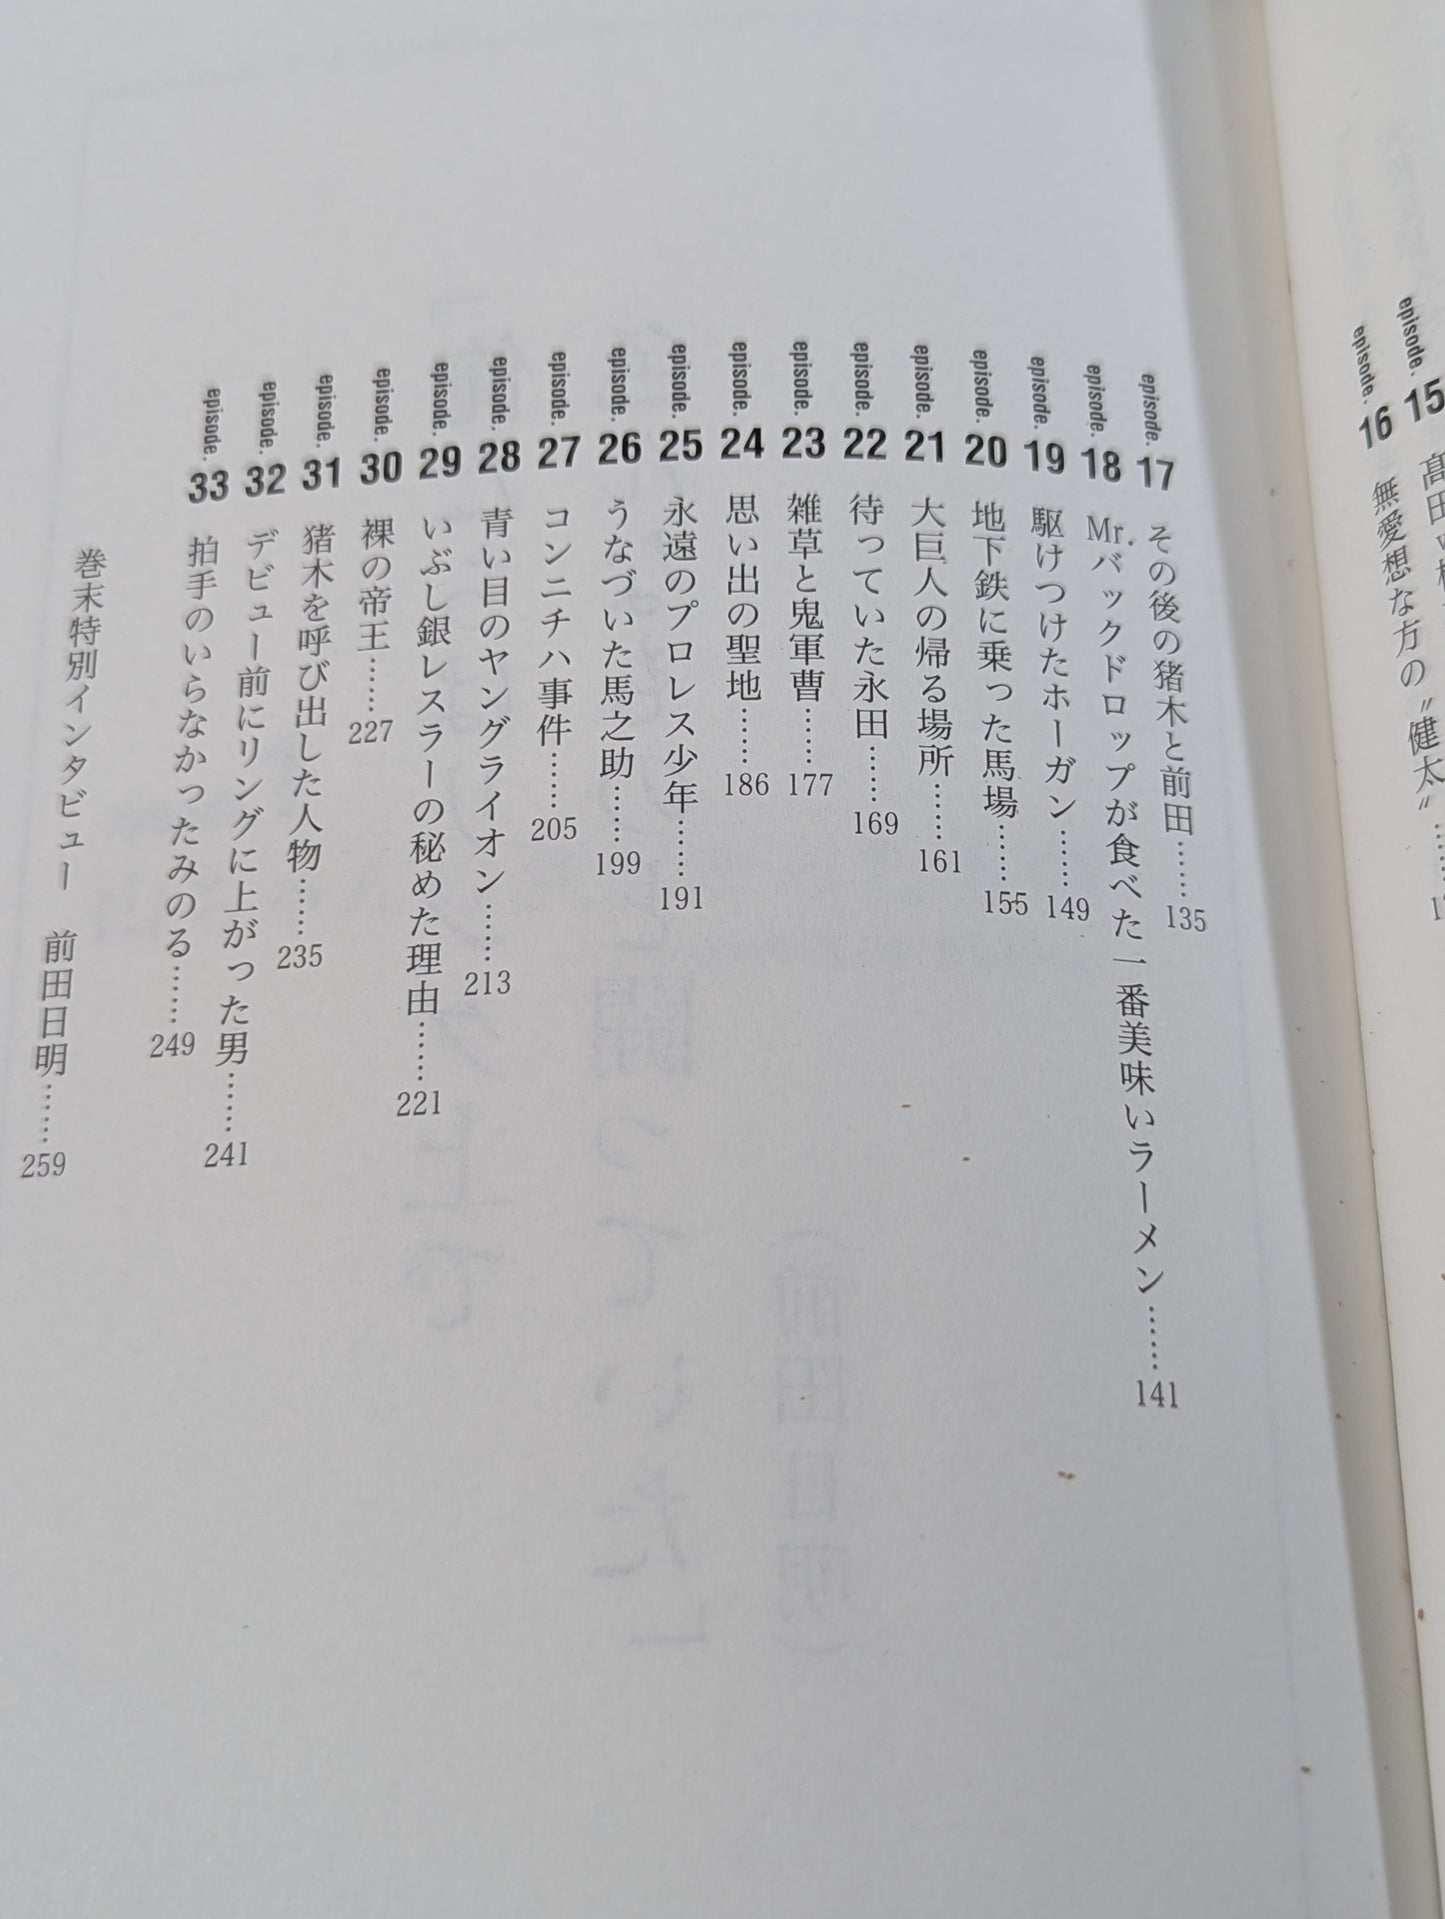 episode. 15 髙田
episode. 16 無愛想な方の〝健太〟……
episode. 17 その後の猪木と前田……135
episode. 18 Mr.バックドロップが食べた一番美味いラーメン……141
episode. 19 駆けつけたホーガン……149
episode. 20 地下鉄に乗った馬場……155
episode. 21 大巨人の帰る場所……161
episode. 22 待っていた永田……169
episode. 23 雑草と鬼軍曹……177
episode. 24 思い出の聖地……186
episode. 25 永遠のプロレス少年……191
episode. 26 うなづいた馬之助……199
episode. 27 コンニチハ事件……205
episode. 28 青い目のヤングライオン……213
episode. 29 いぶし銀レスラーの秘めた理由……221
episode. 30 裸の帝王……227
episode. 31 猪木を呼び出した人物……235
episode. 32 デビュー前にリングに上がった男……241
episode. 33 拍手のいらなかったみのる……249
巻末特別インタビュー 前田日明……259